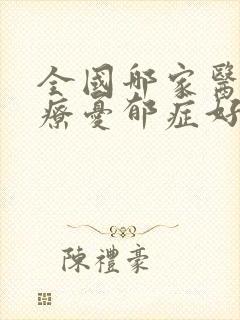 全國邮家醫
療憂郁症好
陳禮豪